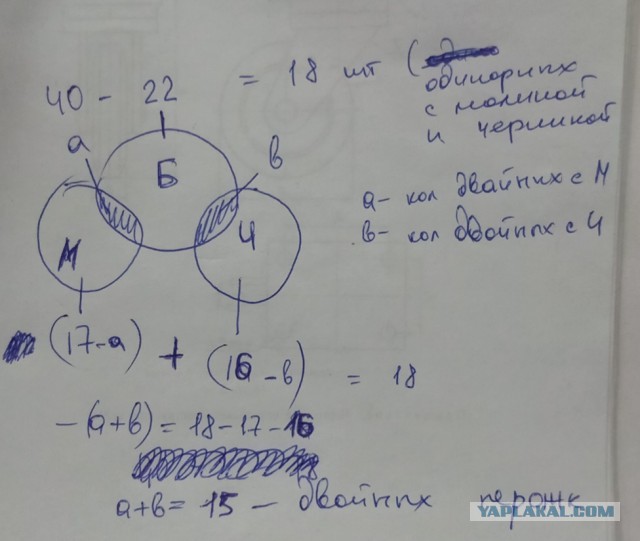 40 - 22 = 18 шт (
одинорных
с малиной
и черникой
а в
Б
М Ч
а - кол двайних с М
в - кол двойных с Ч
(17-а) + (16-в) = 18
-(а+в) = 18-17-16
а+в = 15 - двойных пирожк
YAPLAKAL.COM